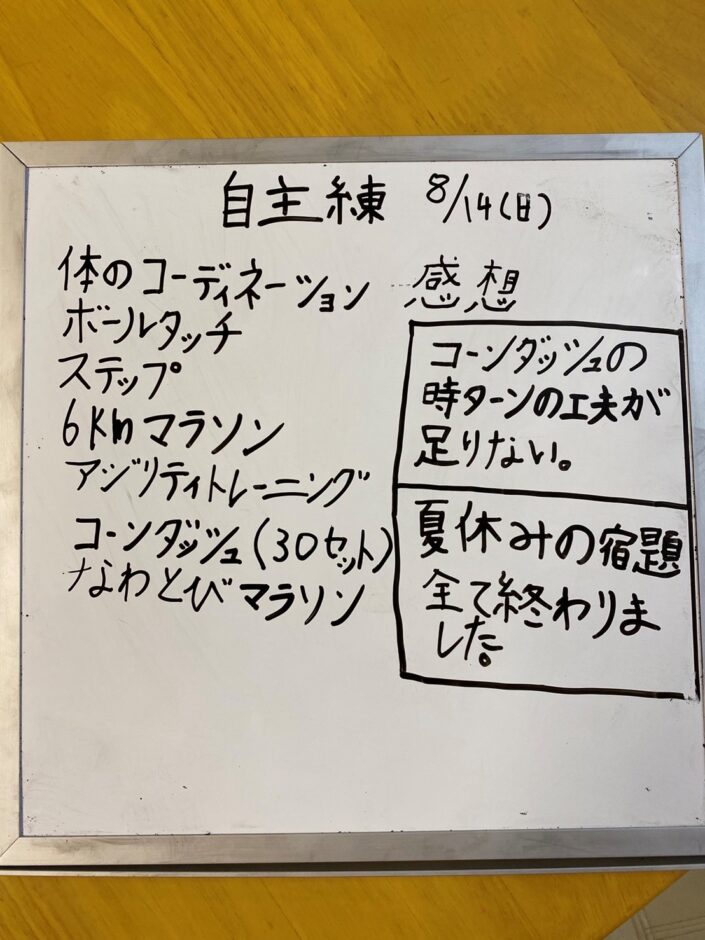 自主練 8/14(日)
体のコーディネーション
ボールタッチ
ステップ
6Kmマラソン
アジリティトレーニング
コーンダッシュ(30セット)
なわとびマラソン
感想
コーンダッシュの
時ターンの工夫が
足りない。
夏休みの宿題
全て終わりま
した。